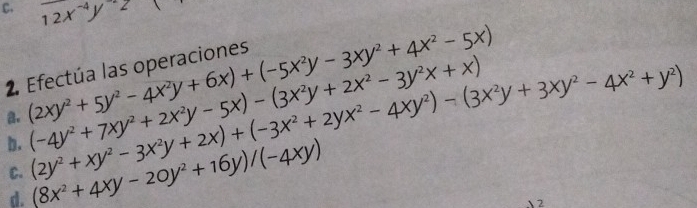 c. 12x⁻⁴y⁻²
2. Efectúa las operaciones
a. (2xy² + 5y² - 4x²y + 6x) + (-5x²y - 3xy² + 4x² - 5x)
b. (-4y² + 7xy² + 2x²y - 5x) - (3x²y + 2x² - 3y²x + x)
c. (2y² + xy² - 3x²y + 2x) + (-3x² + 2yx² - 4xy²) - (3x²y + 3xy² - 4x² + y²)
d. (8x² + 4xy - 20y² + 16y)/(-4xy)